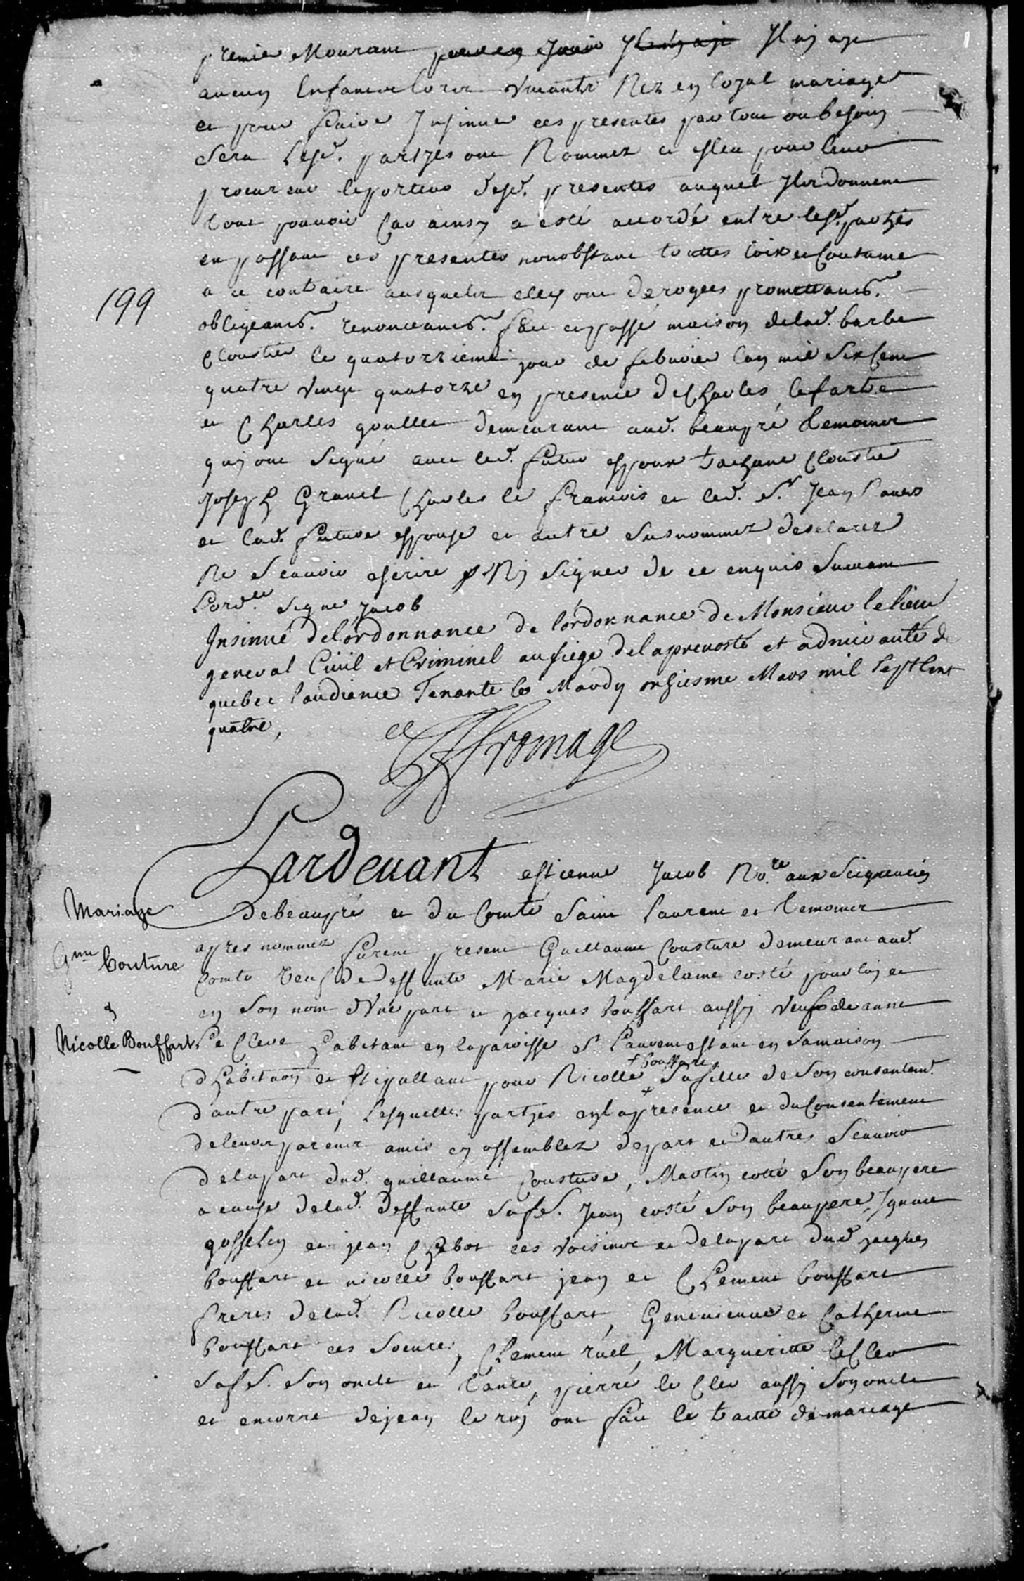 premier Mourant Jl ny aye
aucuns Enfans Vivants Nez en loyal mariage
et pour faire Jnsinuer ces presentes partout ou besoin
sera Lesd. partyes ont Nommez et Esleu pour leur
procureur le porteur desd. presentes auquel Jls donnent
tout pouvoir Car ainsy a esté accordé entre lesd. partyes
en passant ces presentes nonobstant touttes loix et Coutume
a ce contraire ausquelles elles ont derogees promettans.
199
obligeans. renonceans. fait et passé maison de lad. barbe
Cloustie le quatorzieme jour de febvrier l'an mil six Cens
quatre vingt quatorze en presence de Charles lefart
et Charles goullet demeurant aud. beaupré temoins
qui ont signé avec led. futur espoux Cloustie
Joseph Gravel Charles le francois et led. Sr Jean
et lad. future espouse et autre susnommez desclarez
Ne Scavoir escrire Ny signer de ce enquis suivant
l'ord.ce signé Jacob
Jnsinué de l'ordonnance de l'ordonnance de Monsieur le lieut
general Civil et Criminel au siege de la prevosté et admirauté de
quebec l'audiance Tenante le Mardy onziesme Mars mil sept Cent
quatre,
Fromage
Pardevant estienne Jacob No.re aux Seigneuries
Mariage
de beaupré et du Comté Saint laurent et temoins
Gme Couture
apres nommez furent present Guillaume Cousture demeurant aud.
Comté veuf de deffunte Marie Magdelaine costé pour luy et
en son nom d'Une part et jacques bouffart aussy veuf de anne
&
Nicolle Bouffart
le Clerc habitant en la paroisse St Laurent estant en sa maison
+ bouffart
d'habitaon et stipullant pour Nicolle + sa fille de son consentemt.
d'autre part, Lesquelles partyes en la presence et du Consentement
de leurs parens amis en assemblez de part et d'autres Scavoir
de la part dud. guillaume Cousture, Martin coté son beaupere
a cause de lad. deffunte sa fe. Jean costé son beaupere, Jgnace
gosselin et jean Chabot ces voisins et de la part dud. jacques
bouffart et nicolle bouffart jean et Clement bouffart
freres de lad. Nicolle bouffart, Genevieve et Catherine
bouffart ces soeures, Clement ruel, Marguerite leClerc
sa fe. son oncle et tante, pierre le Clerc aussy son oncle
et encorre de jean le roy ont fait le traitté de mariage